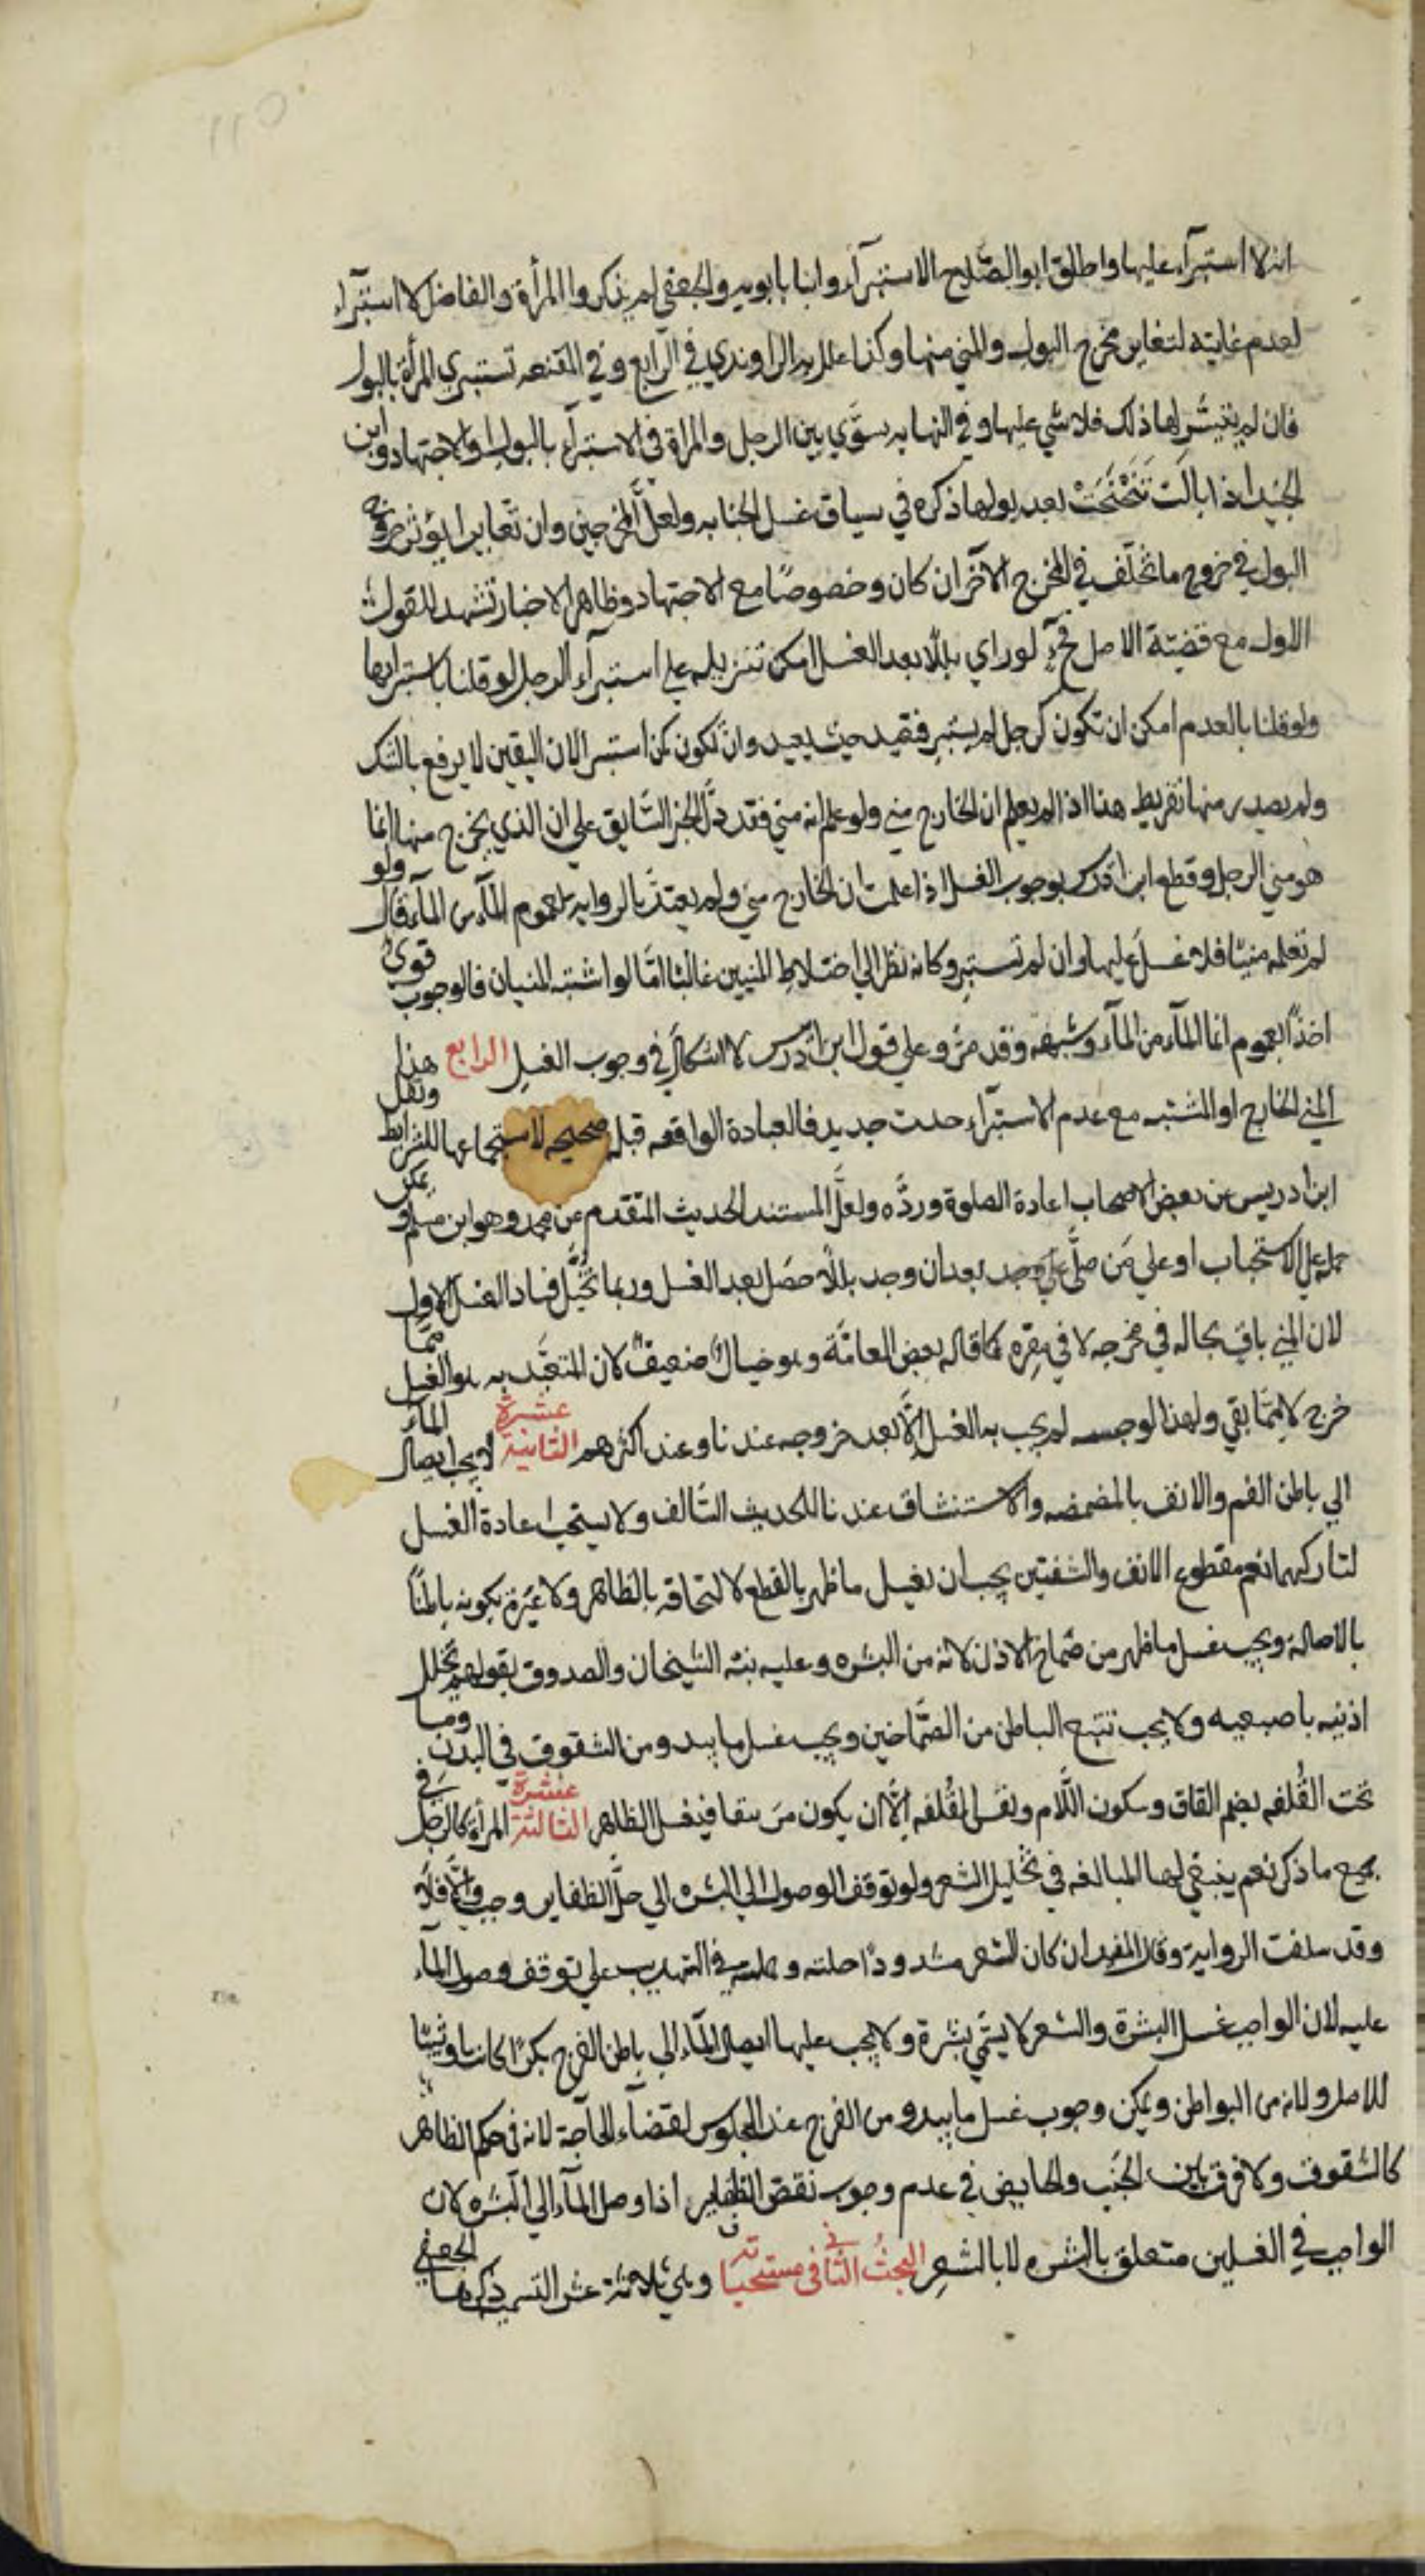 انه لا استبرآء عليها واطلق ابو الصلاح الاستبرآء وابنا بابويه والجعفي لم يذكروا المرأة والفاضل لا استبرآء
لعدم غايته لتغاير مخرج البول والمني منها وكذا علل به الراوندي في الرابع وفي المقنعه تستبري المرأة بالبول
فان لم يتيسّر لها ذلك فلا شي عليها وفي النهايه سوّي بين الرجل والمراة في الاستبرآء بالبول والاجتهاد وابن
الجنيد اذا بالَتْ تَنَحْنَحَتْ بعد بولها ذكره في سياق غسل الجنابه ولعلّ المخرجين وان تغايرا يؤثر خروج
البول في خروج ما تخلّف في المخرج الآخر ان كان وخصوصًا مع الاجتهاد وظاهر الاخبار تشهد للقول
الاول مع قضيّة الاصل فحٓ لو راي بللا بعد الغسل امكن تنزيله علي استبرآء الرجل لو قلنا باستبرايها
ولو قلنا بالعدم امكن ان تكون كرجل لم يستبر فتعيد حيث يعيد وان تكون كمن استبرا لان اليقين لا يرفع بالشك
ولم يصدر منها تفريط هذا اذا لم يعلم ان الخارج مني ولو علم انه مني فقد دلّ الخبر السابق علي ان الذي يخرج منها انما
هو مني الرجل وقطع ابن ادريس بوجوب الغسل اذا علمت ان الخارج مني ولم يعتدّ بالروايه لعموم المآء من المآء قال ولو
لم تعلمه منيّا فلا غسل عليها وان لم تستبر وكانه نظر الي اختلاط المنيين غالبا امّا لو اشتبه المنيان فالوجوب قويٌ
اخذًا بعموم انما المآء من المآء وشبهه وقد مرّ وعلي قول ابن ادريس لا اشكال في وجوب الغسل الرابع هذا
المني الخارج او المشتبه مع عدم الاستبرآء حدث جديد فالعبادة الواقعه قبله صحيحه لاستجماعها للشرايط ونقل
ابن ادريس عن بعض الاصحاب اعادة الصلوة وردّه ولعلّ المستند الحديث المتقدم عن محمد وهو ابن مسلم ويمكن
حمله علي الاستحباب او علي مَن صلّي بعد ان وجد بللا حصَل بعد الغسل وربما تخيّل فساد الغسل الاول
لان المني باق بحاله في مخرجه لا في مقره كما قاله بعض العامّة وهو خيالٌ ضعيفٌ لان المتعبّد به هو الغسل ممّا
خرج لا ممّا بقي ولهذا لوحبسه لم يجب به الغسل الّا بعد خروجه عندنا وعند اكثرهم الثانية عشرة لا يجب ايصال المآء
الي باطن الفم والانف بالمضمضه والاستنشاق عندنا للحديث السّالف ولا يستحب اعادة الغسل
لتاركهما نعم مقطوع الانف والشفتين يجب ان يغسل ما ظهر بالقطع لالتحاقه بالظاهر ولا عبرة بكونه باطنًا
بالاصالة ويجب غسل ما ظهر من صماخ الاذن لانه من البشره وعليه نبّه الشيخان والصدوق بقولهم يخلل
اذنيه باصبعيه ولا يجب تتبع الباطن من الصّماخين ويجب غسل ما يبدو من الشقوق في البدن وما
تحت القُلفه بضم القاف وسكون اللّام ونفس القُلفه الّا ان يكون مرتتقا فيغسل الظاهر الثالثة عشرة المرأة كالرجل في
جميع ما ذكر نعم ينبغي لها المبالغه في تخليل الشعر ولو توقف الوصول الي البشره الي حلّ الظفاير وجب والّا فلا
وقد سلفت الرواية وقال المفيد ان كان الشعر مشدودًا حلته وحمله في التهذيب علي توقف وصول المآء
عليه لان الواجب غسل البشرة والشعر لا يسمّي بشرة ولا يجب عليها ايصال المآء الي باطن الفرج بكرًا كانت او ثيبًا
للاصل ولانه من البواطن ويمكن وجوب غسل ما يبدو من الفرج عند الجلوس لقضآء الحاجة لانه في حكم الظاهر
كالشقوق ولا فرق بين الجنب والحايض في عدم وجوب نقض الظفاير اذا وصل المآء الي البشره لان
الواجب في الغسلين متعلق بالبشره لا بالشعر البحثُ الثاني في مستحباته وهي ثلاثة عشر التسميه ذكرها الجعفي